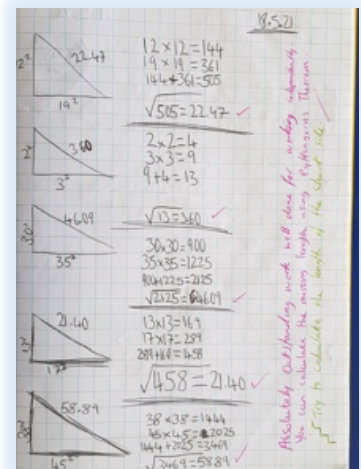 18.5.21
22.47
19²
12×12=144
19×19=361
144+361=505
√505=22.47
3.60
2²
3²
2×2=4
3×3=9
9+4=13
√13=360
46.09
30²
35²
30×30=900
35×35=1225
900+1225=2125
√2125=4609
21.40
13×13=169
17×17=289
=458
√458=21.40
58.89
45²
38×38=1444
45×45=2025
1444+2025=3469
√3469=5889
Absolutely Outstanding work well done for working independently
You can calculate the missing length using Pythagoras Theorem.
Try to calculate the length of the short side